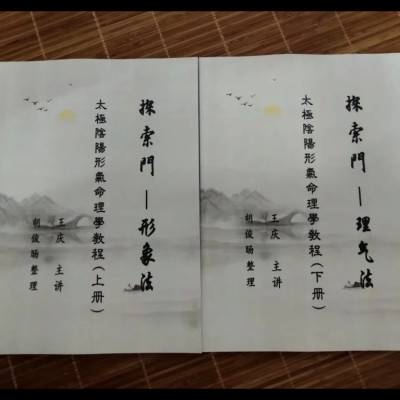 探索門—形象法
太極陰陽形氣命理學教程(上册)
王庆 主讲
胡俊旸整理
探索門—理气法
太極陰陽形氣命理學教程(下册)
王庆 主讲
胡俊旸整理